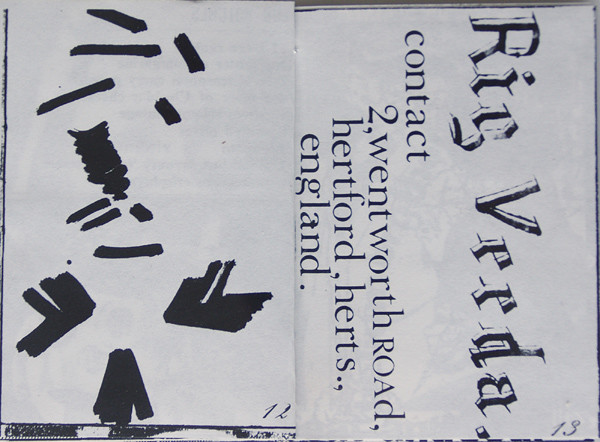 12
Rig Verda.
contact
2,wentworth ROAd,
hertford,herts.,
england.
13